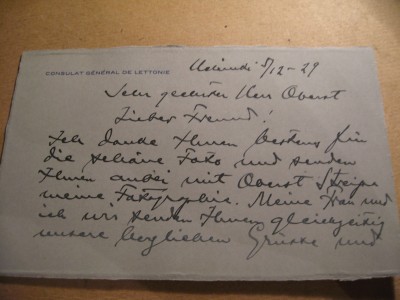 CONSULAT GÉNÉRAL DE LETTONIE
Helsinki 5/12-29
Sehr geehrter Herr Oberst
Lieber Freund!
Ich danke Ihnen bestens für
die schöne Foto und senden
Ihnen anbei mit Oberst
meine Fotographie. Meine Frau und
ich wir senden Ihnen gleichzeitig
unsere herzlichen Grüsse und